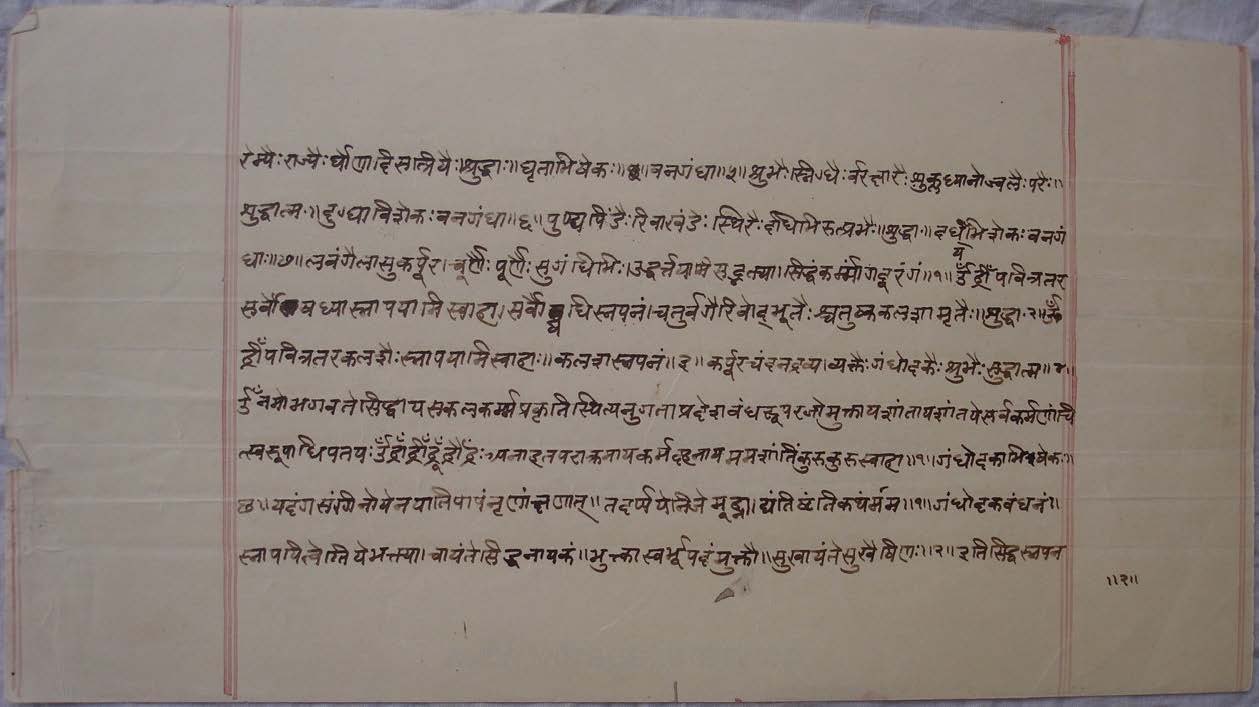 रम्यैः राज्यैः र्घ्राणादिसात्प्रियैः॥श्रुद्धाः॥घृताभिषेकः॥छ॥वनगंधा॥५॥श्रुभैः स्निग्धैः र्वरक्षारैः श्रुक्लध्यानोज्वलैः परैः॥
श्रुद्धात्म॥दुग्धाविशेकः वनगंधा॥६॥पुण्यपिंडैः रिवाखंडैः स्थिरैः दधिभिरुत्प्रभैः॥श्रुद्धा॥दधीभिशेकः वनगं
धाः॥७॥लवंगैलासुकर्पूर।चूर्णैः पूर्णैः सुगंधिभिः।उद्वर्त्तयामि सुद्भक्त्या।सिद्धंकर्म्मांगदूरंगं॥१॥र्यं ॐ ह्रीँ पवित्रतर
सर्वौषध्यास्नापयामि स्वाहा।सर्वौषधिस्नपनं।चतुर्वर्गैरिवोद्भूतैः श्चतुष्ककलशामृतैः॥श्रुद्धा २॥ॐ
ह्रीँ पवित्रतरकलशैः स्नापयामिस्वाहाः॥कलशस्नपनं॥३॥कर्पूरचंदनद्रव्य।व्यक्तैः गंधोदकैः श्रुभैः श्रुद्धात्म॥४॥
ॐ नमो भगवते सिद्धाय सकलकर्म्मप्रकृतिस्थित्यनुगताप्रदेशबंध मुक्ताय शांताय शांतपे सर्वकर्मणां चि
त्स्वरूपाधिपतयः ॐ ह्राँ ह्रीँ ह्रूँ ह्रौँ ह्रः अनाहतपराक्रमाय कर्मदहनाय मम शांतिंकुरुकुरुस्वाहा॥१॥गंधोदकाभिषेकः॥
छ॥यदंगसंगिनोयेन यातिपापंनृणांक्षणात्॥तदर्प्ययेनिजेमूर्द्ध्ना।द्यंतिष्टंतिकथंर्मम॥१॥गंधोदकवंधनं॥
स्नापयित्वेतियेभक्त्या।चायंतेसिद्धनायकं॥भुक्तास्वर्भूपदंमुक्तौ॥सुखायंतेसुखैषिणः॥२॥इतिसिद्धस्नपन
॥२॥